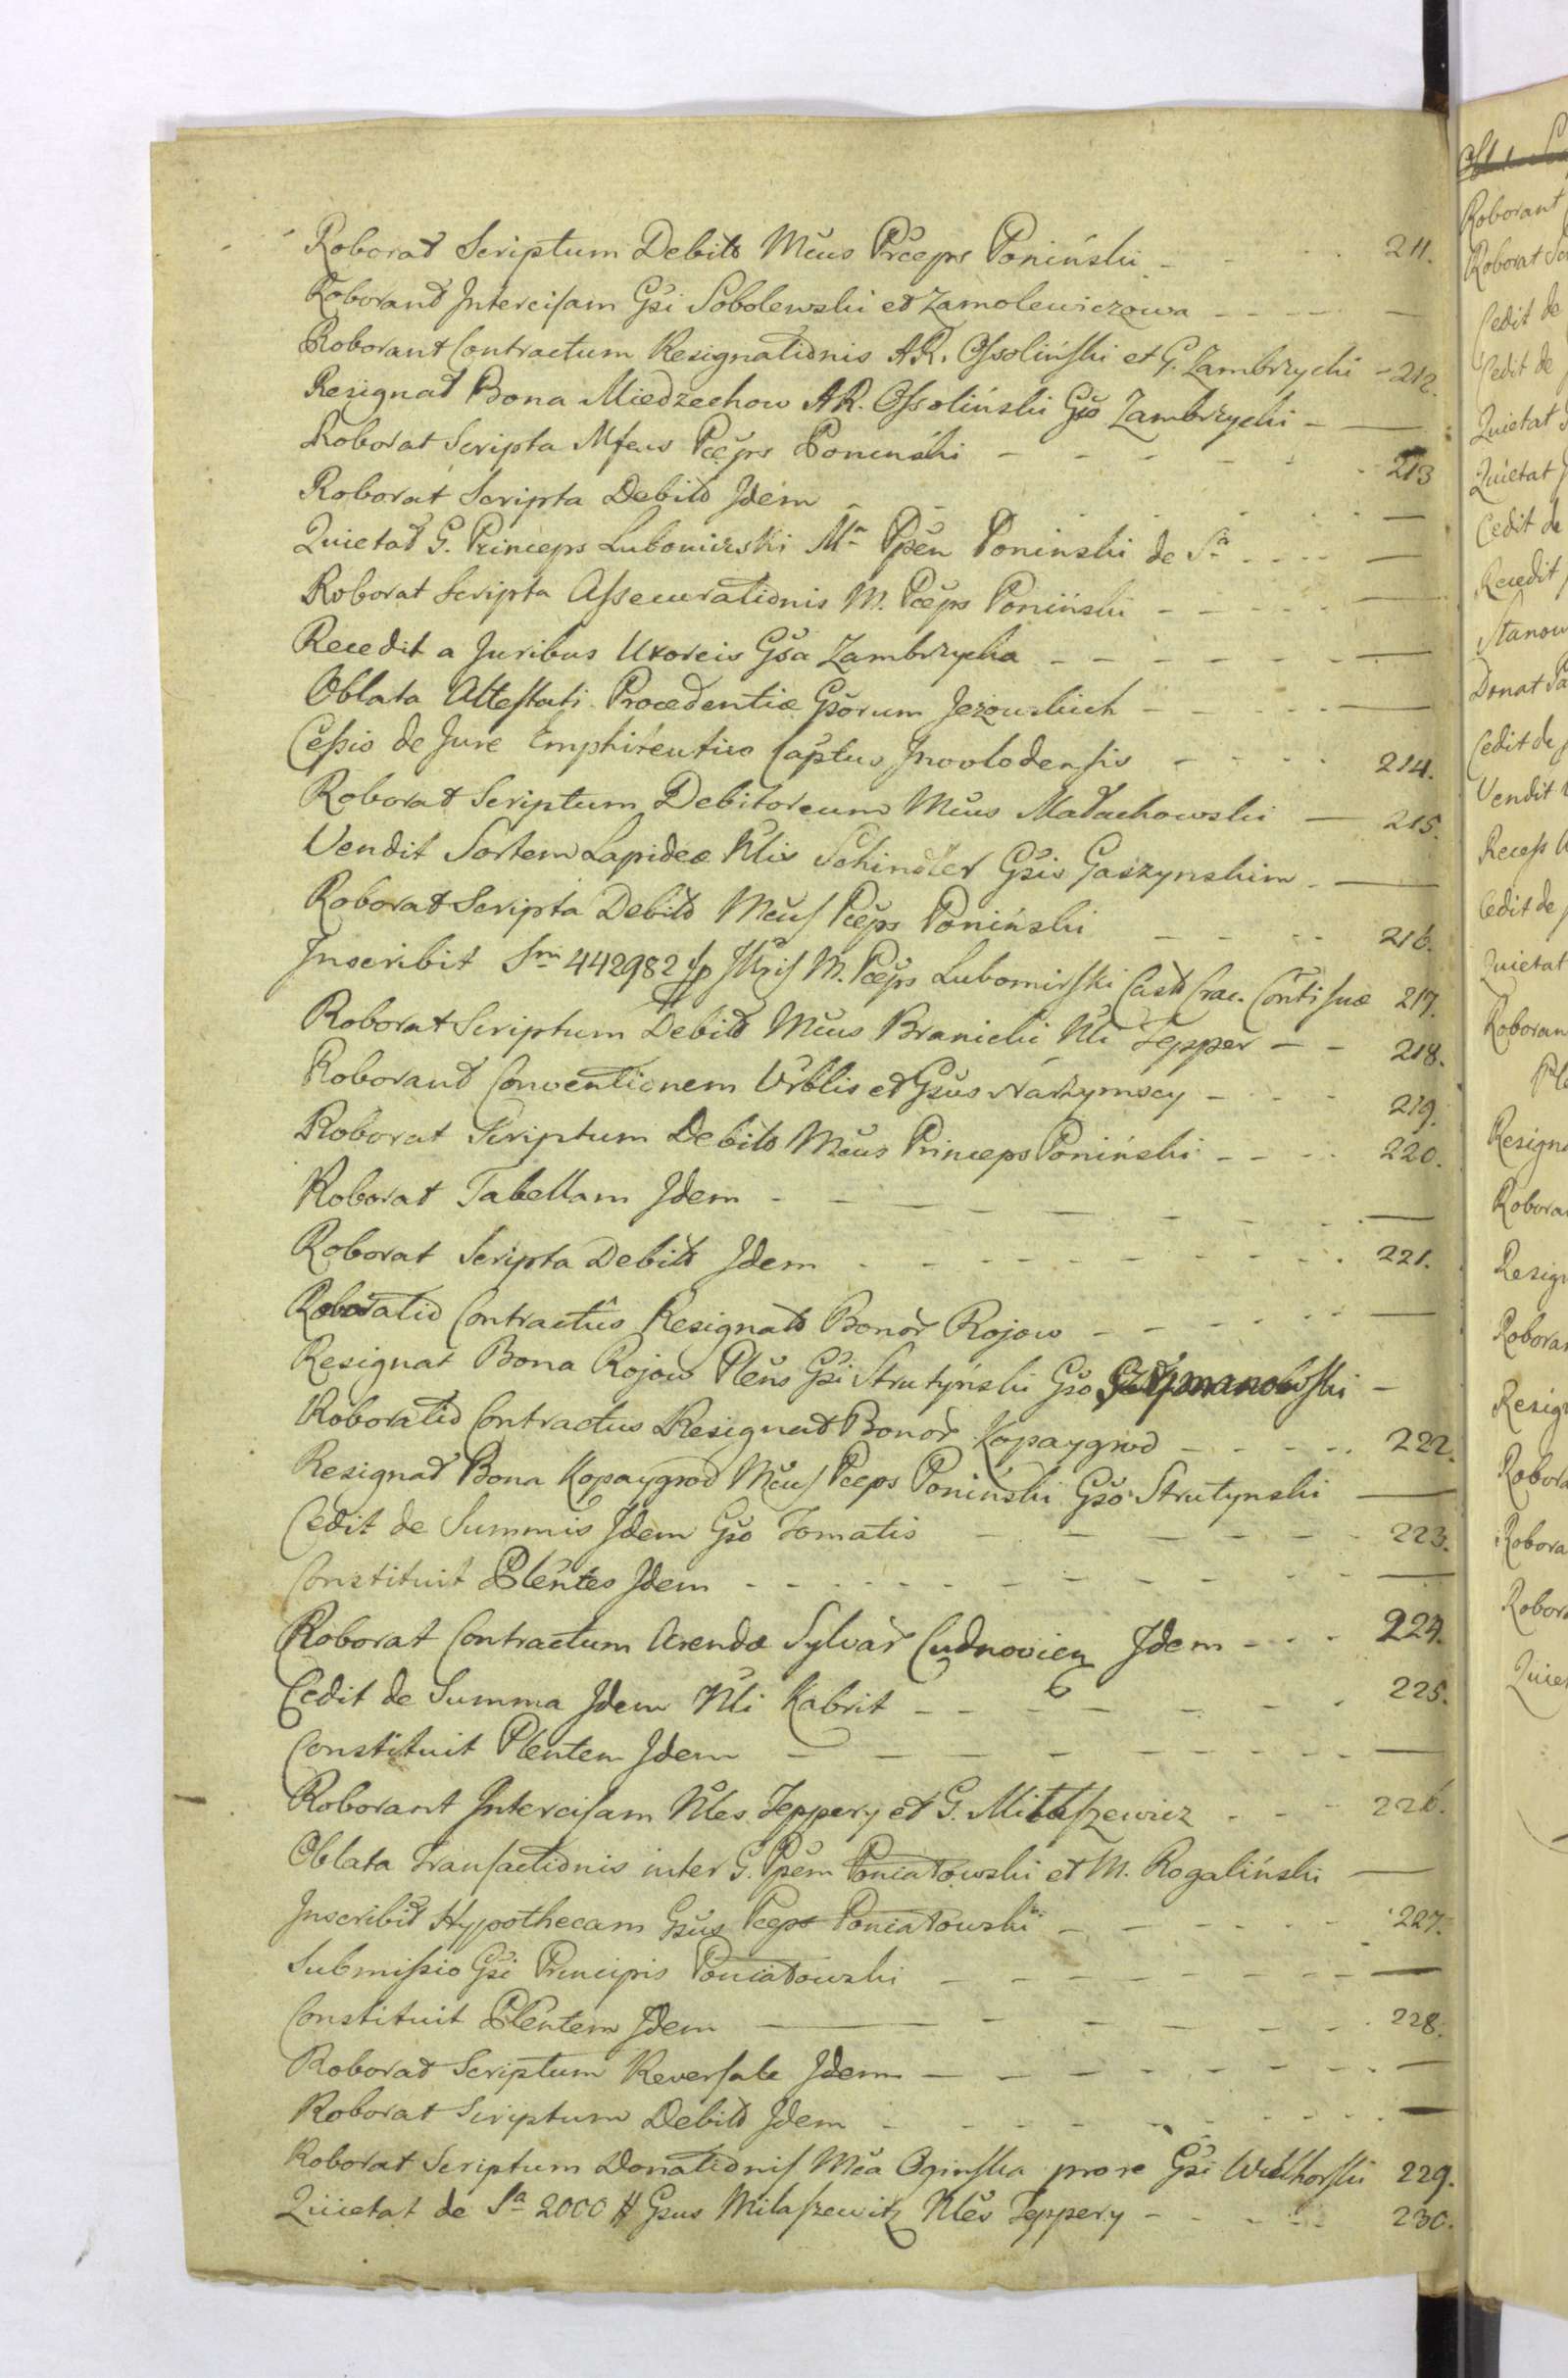 Roborat Scriptum Debito Mcus Pceps Poniński - - - 211.
Roborant Intercisam Gsi Sobolewski et Zamolewiczowa - - - - —
Roborant Contractum Resignationis AR. Ossoliński et G. Zambrzycki - 212.
Resignat Bona Miedzechow AR. Ossoliński Gso Zambrzycki - —
Roborat Scripta Mfcus Pceps Poninski - - - - - 213
Roborat Scripta Debito Idem - - - - - —
Quietat G. Princeps Lubomirski Mm Ppem Poninski de Sa - - - —
Roborat Scripta Assecurationis M. Pceps Poniński - - - - —
Recedit a Juribus Uxoreis Gsa Zambrzycka - - - - - - —
Oblata Attestati Procedentiæ Gsorum Jezowskich - - - - - —
Cessio de Jure Emphiteutico Captus Inovlodensis - - - - 214.
Roborat Scriptum Debitoreum Mcus Małachowski — 215.
Vendit Sortem Lapideæ Nlis Schindler Gsis Gaszynskim - —
Roborat Scripta Debito Mcus Pceps Poniński - - - - 216.
Inscribit Sm 442982 fp M. Pceps Lubomirski Cast Crac. Conti suæ 217.
Roborat Scriptum Debito Mcus Branicki Nli Tepper - - 218.
Roborant Conventionem Urblis et Gsus Narzymscy - - - 219.
Roborat Scriptum Debito Mcus Princeps Poniński - - - 220.
Roborat Tabellam Idem - - - - - - - —
Roborat Scripta Debito Idem - - - - - - - - 221.
Roboratio Contractûs Resignato Bonor Rojow - - - - - —
Resignat Bona Rojow Plens Gsi Strutyński Gso Szymanowski -
Roboratio Contractus Resignat Bonor Kopaygrod - - - - 222.
Resignat Bona Kopaygrod Mcus Pceps Poniński Gso Strutynski —
Cedit de Summis Idem Gso Tomatis - - - - - - - 223.
Constituit Plentes Idem - - - - - - - - - - —
Roborat Contractum Arendæ Sylvar Cudnovien Idem - - - 224.
Cedit de Summa Idem Nli Kabrit - - - - - - 225.
Constituit Plentem Idem - - - - - - - - —
Roborant Intercisam Nles Teppery et G. Milaszewicz - - - 226.
Oblata Transactionis inter G. Ppem Poniatowski et M. Rogaliński —
Inscribit Hypothecam Gsus Pceps Poniatowski - - - - - 227.
Submissio Gsi Principis Poniatowski - - - - - - - —
Constituit Plentem Idem — - - - - - - 228.
Roborat Scriptum Reversale Idem - - - - - - - —
Roborat Scriptum Debito Idem - - - - - - - —
Roborat Scriptum Donationis Mca Oginska pro re Gsi Wielhorski 229.
Quietat de Sa 2000 # Gsus Milaszewitz Nles Teppery - - - - 230.
Roborant
Roborat
Cedit de
Cedit de
Quietat
Quietat
Cedit de
Recedit
Donat
Cedit de
Vendit
Recess
Cedit de
Quietat